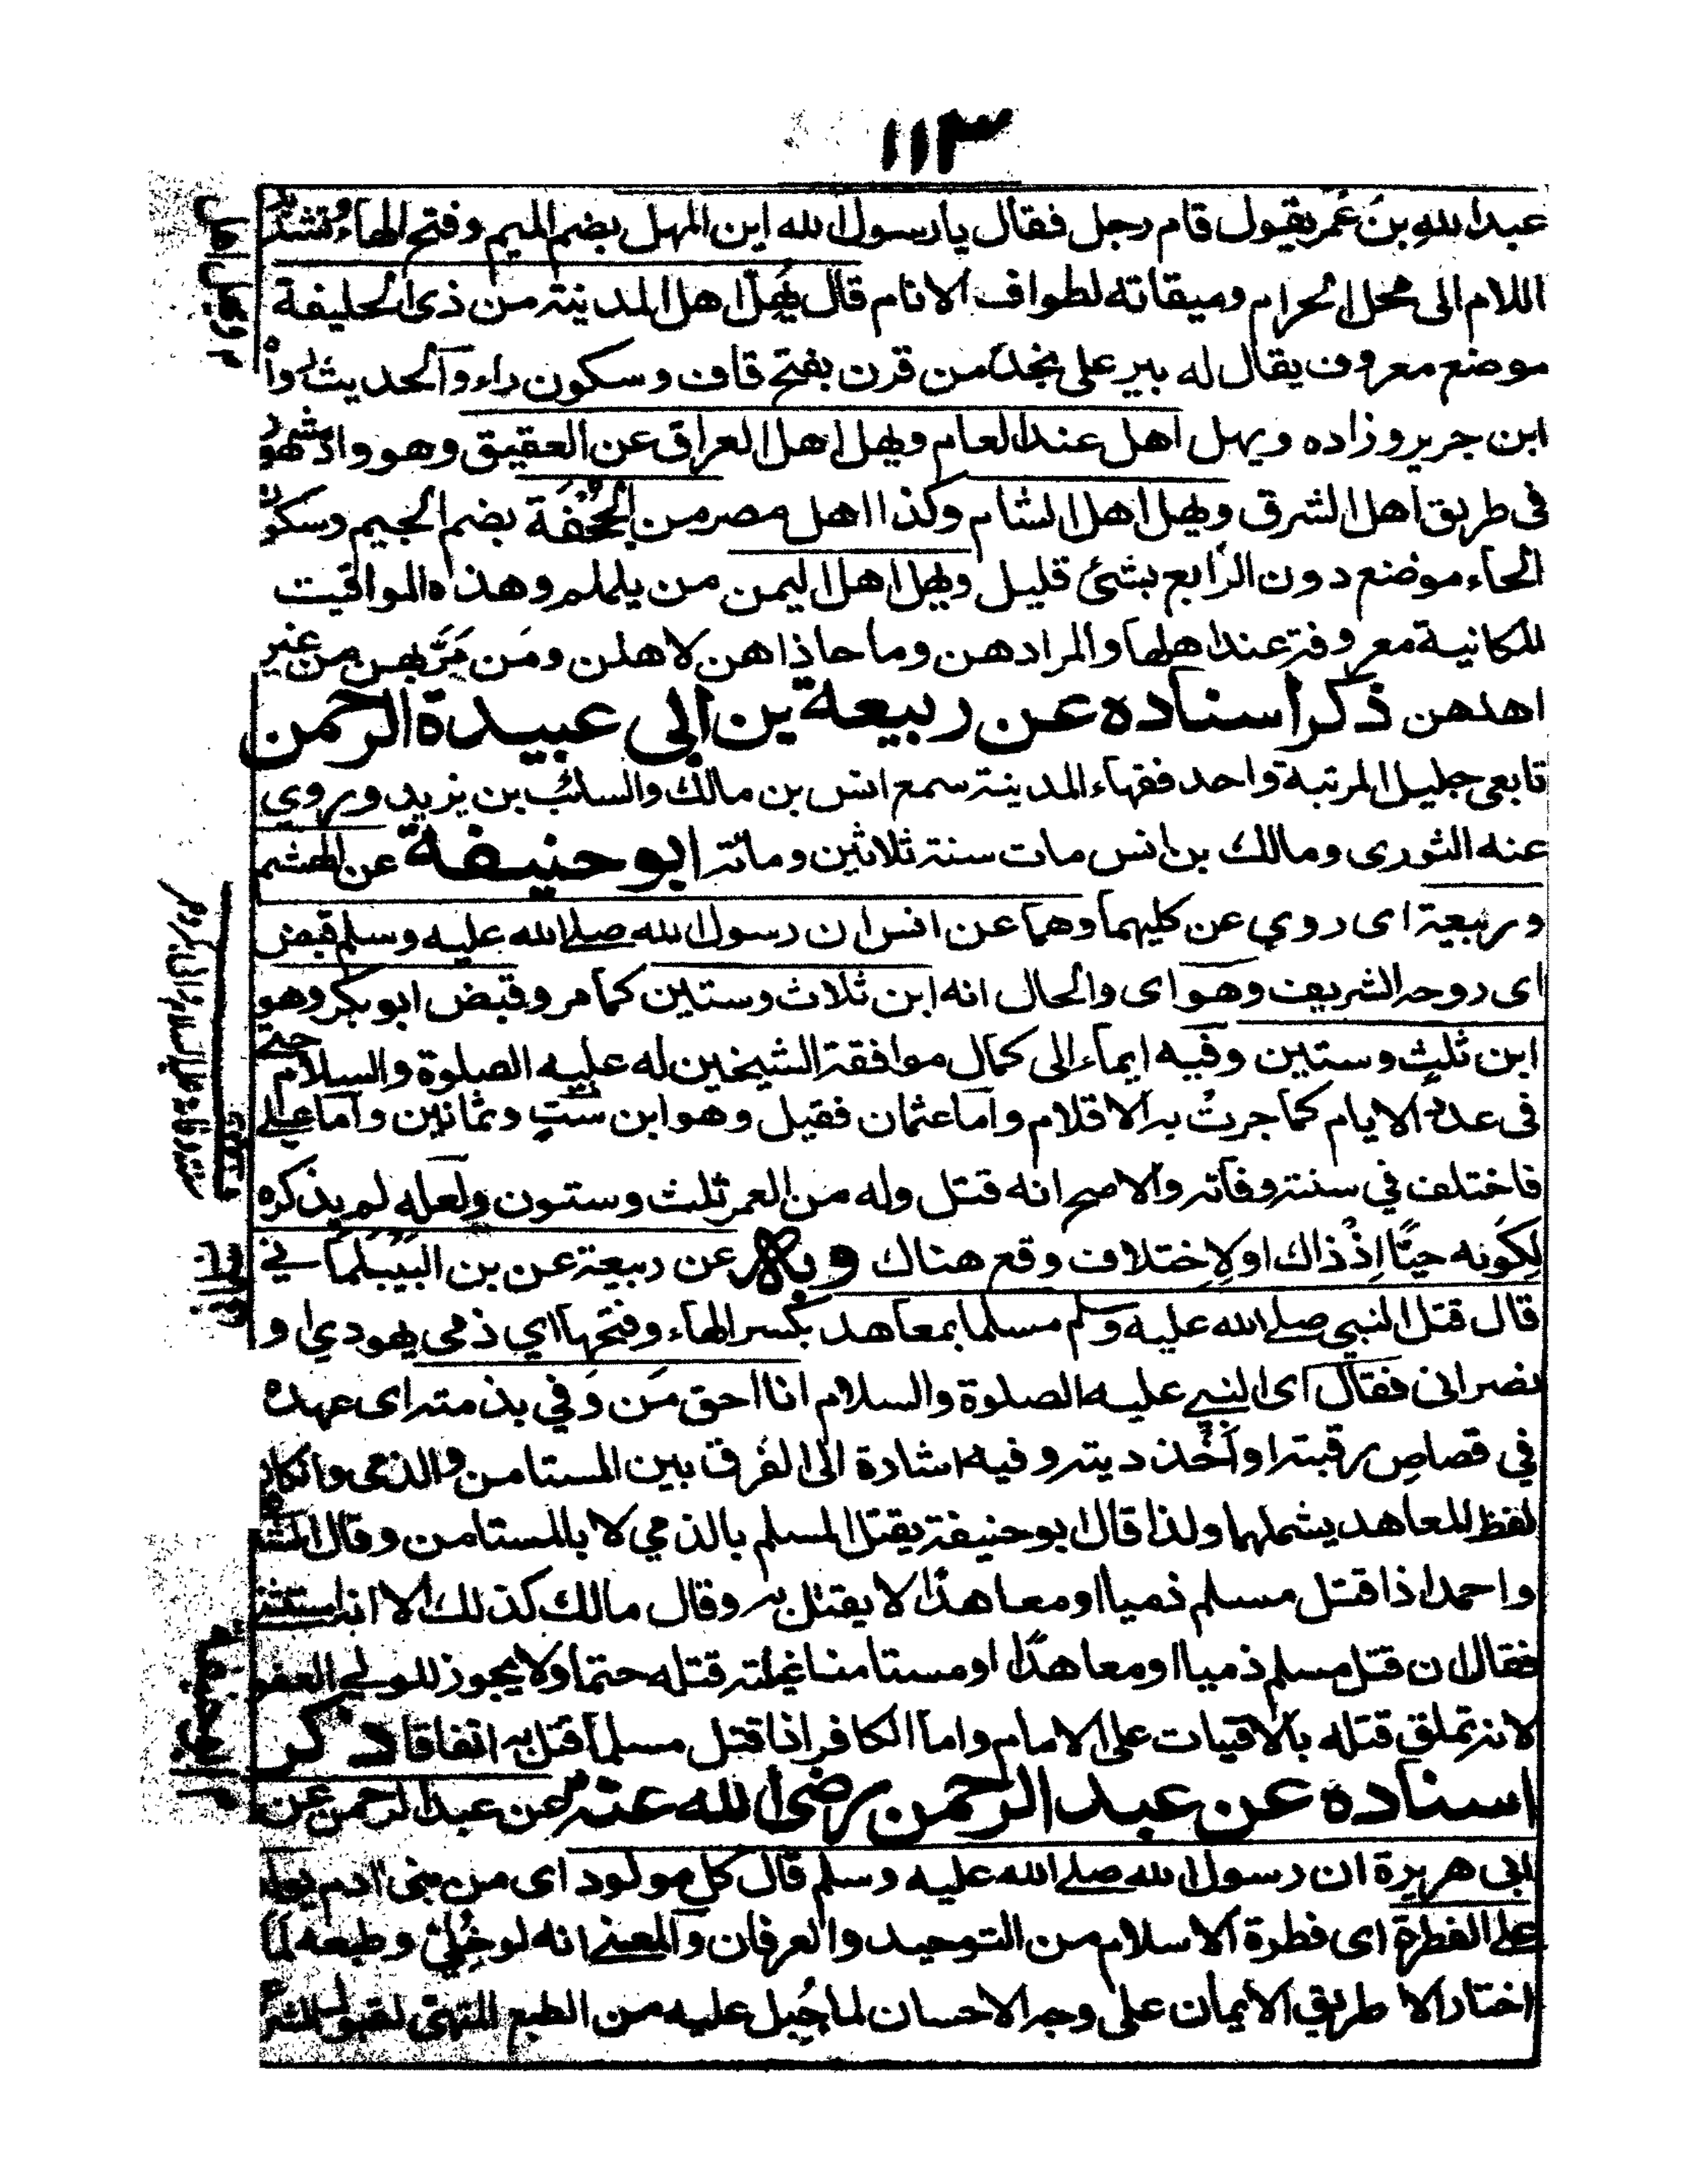 ١١٣
عبدالله بنُ عُمر يقول قام رجل فقال يا رسول الله اين المهل بضم الميم وفتح الهاء وتشد
اللام الى محل الحرام وميقاته لطواف الانام قال يُهِلّ اهل المدينة من ذى الحليفة
موضع معروف يقال له بير على بنجد من قرن بفتح قاف وسكون راء والحديث رواه
ابن جرير وزاده ويهل اهل عند العام ويهل اهل العراق عن العقيق وهو واد مشهور
فى طريق اهل الشرق ويهل اهل الشام وكذا اهل مصر من الجُحْفَة بضم الجيم وسكون
الحاء موضع دون الرابع بشئ قليل ويهل اهل اليمن من يلملم وهذه المواقيت
المكانية معروفة عند اهلها والمراد هن وما حاذاهن لاهلن ومَن مَرَّ بهن من غير
اهلهن ذكر اسناده عن ربيعة بن ابى عبيدة الرحمن
تابعى جليل المرتبة واحد فقهاء المدينة سمع انس بن مالك والسائب بن يزيد وروي
عنه الثورى ومالك بن انس مات سنة ثلاثين ومائة ابو حنيفة عن الهشيم
وربيعة اى روي عن كليهما وهما عن انس ان رسول الله صلى الله عليه وسلم قبض
اى روحه الشريف وهو اى والحال انه ابن ثلاث وستين كما مر وقبض ابو بكر وهو
ابن ثلث وستين وفيه ايماء الى كمال موافقة الشيخين له عليه الصلوة والسلام حتى
فى عدة الايام كما جرتْ به الاقلام واما عثمان فقيل وهو ابن ستٍ وثمانين واما على
فاختلف في سنة وفاته والاصح انه قتل وله من العمر ثلث وستون ولعله لم يذكره
لكَونه حيًّا اِذْ ذاك او لاِختلاف وقع هناك وبه عن ربيعة عن بن البَيْلَمانى
قال قتل النبي صلى الله عليه وسلم مسلما بمعاهد بكسر الهاء وفتحها اي ذمى يهودي او
نصرانى فقال اى النبي عليه الصلوة والسلام انا احق مَن وَفي بذمته اى عهده
في قصاص رقبته او اَخْذ ديته وفيه اشارة الى الفرق بين المستامن والذمى وان كان
لفظ المعاهد يشملهما ولذا قال ابو حنيفة يقتل المسلم بالذمي لا بالمستامن وقال الشافعى
واحمد اذا قتل مسلم ذميا او معاهدًا لا يقتل به وقال مالك كذلك الا انه استثنى
فقال ان قتل مسلم ذميا او معاهدًا او مستامنا غيلة قتله حتما ولا يجوز للولي العفو
لانه تعلق قتله بالاقيات على الامام واما الكافر اذا قتل مسلما قتل به اتفاقا ذكر
اسناده عن عبد الرحمن رضى الله عنه عن عبد الرحمن عن
ابى هريرة ان رسول الله صلى الله عليه وسلم قال كل مولود اى من بنى ادم يولد
على الفطرة اى فطرة الاسلام من التوحيد والعرفان والمعنى انه لو خُلّي وطبعه لما
اختار الا طريق الايمان على وجه الاحسان لما جُبِل عليه من الطبع المتهئ لقبول الشرع